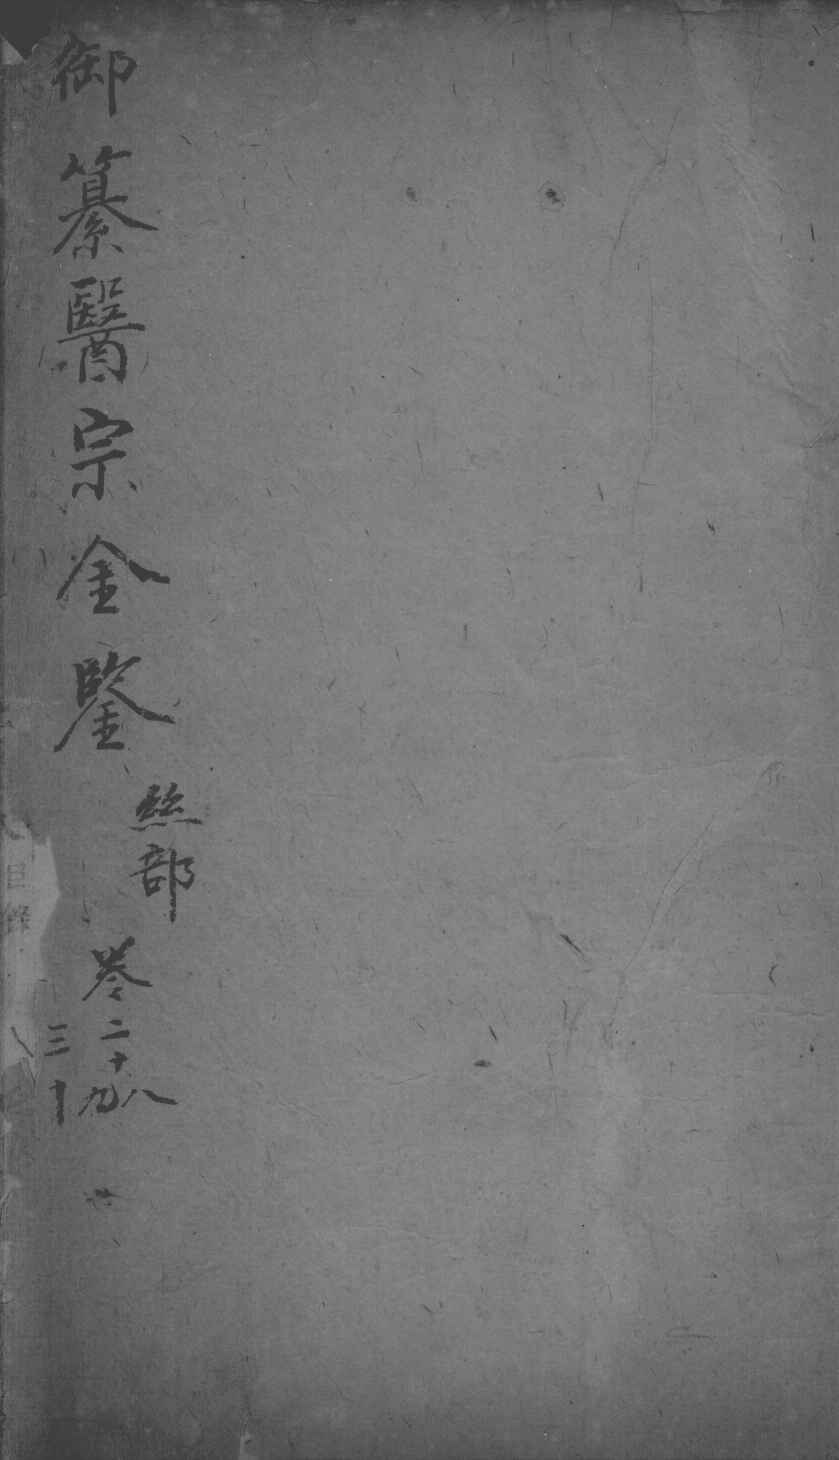 御纂醫宗金鑒
絲部
卷二十八九
三十